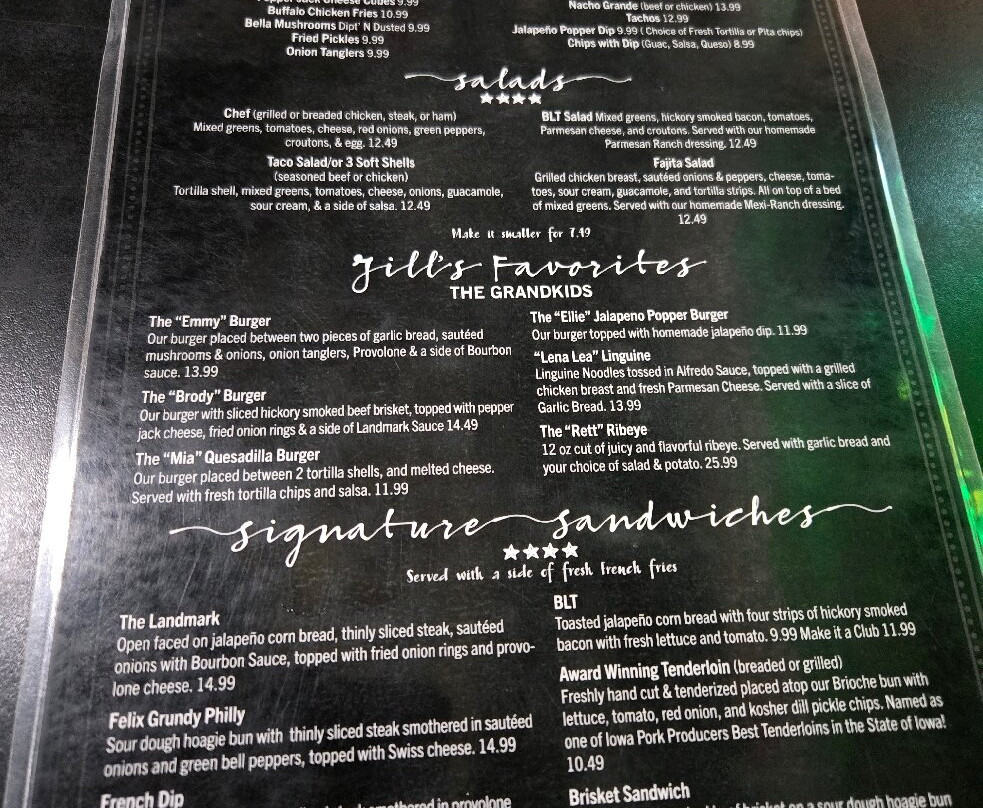 Buffalo Chicken Fries 10.99
Bella Mushrooms Dipt' N Dusted 9.99
Fried Pickles 9.99
Onion Tanglers 9.99
Nacho Grande (beef or chicken) 13.99
Tachos 12.99
Jalapeño Popper Dip 9.99 ( Choice of Fresh Tortilla or Pita chips)
Chips with Dip (Guac, Salsa, Queso) 8.99
salads
Chef (grilled or breaded chicken, steak, or ham)
Mixed greens, tomatoes, cheese, red onions, green peppers,
croutons, & egg. 12.49
Taco Salad/or 3 Soft Shells
(seasoned beef or chicken)
Tortilla shell, mixed greens, tomatoes, cheese, onions, guacamole,
sour cream, & a side of salsa. 12.49
BLT Salad Mixed greens, hickory smoked bacon, tomatoes,
Parmesan cheese, and croutons. Served with our homemade
Parmesan Ranch dressing. 12.49
Fajita Salad
Grilled chicken breast, sautéed onions & peppers, cheese, toma-
toes, sour cream, guacamole, and tortilla strips. All on top of a bed
of mixed greens. Served with our homemade Mexi-Ranch dressing.
12.49
Make it smaller for 7.49
Jill's Favorites
THE GRANDKIDS
The "Emmy" Burger
Our burger placed between two pieces of garlic bread, sautéed
mushrooms & onions, onion tanglers, Provolone & a side of Bourbon
sauce. 13.99
The "Brody" Burger
Our burger with sliced hickory smoked beef brisket, topped with pepper
jack cheese, fried onion rings & a side of Landmark Sauce 14.49
The "Mia" Quesadilla Burger
Our burger placed between 2 tortilla shells, and melted cheese.
Served with fresh tortilla chips and salsa. 11.99
The "Ellie" Jalapeno Popper Burger
Our burger topped with homemade jalapeño dip. 11.99
"Lena Lea" Linguine
Linguine Noodles tossed in Alfredo Sauce, topped with a grilled
chicken breast and fresh Parmesan Cheese. Served with a slice of
Garlic Bread. 13.99
The "Rett" Ribeye
12 oz cut of juicy and flavorful ribeye. Served with garlic bread and
your choice of salad & potato. 25.99
signature sandwiches
Served with a side of fresh french fries
The Landmark
Open faced on jalapeño corn bread, thinly sliced steak, sautéed
onions with Bourbon Sauce, topped with fried onion rings and provo-
lone cheese. 14.99
Felix Grundy Philly
Sour dough hoagie bun with thinly sliced steak smothered in sautéed
onions and green bell peppers, topped with Swiss cheese. 14.99
French Dip
BLT
Toasted jalapeño corn bread with four strips of hickory smoked
bacon with fresh lettuce and tomato. 9.99 Make it a Club 11.99
Award Winning Tenderloin (breaded or grilled)
Freshly hand cut & tenderized placed atop our Brioche bun with
lettuce, tomato, red onion, and kosher dill pickle chips. Named as
one of Iowa Pork Producers Best Tenderloins in the State of Iowa!
10.49
Brisket Sandwich